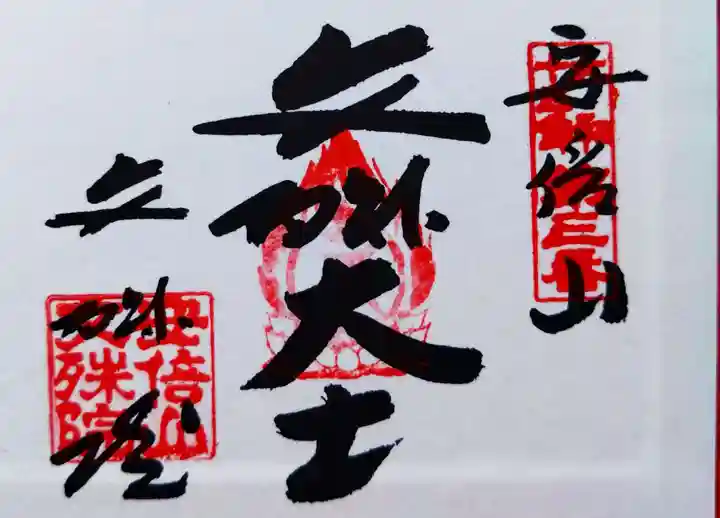 安倍山
文殊大士
文殊院
安倍山
文殊院